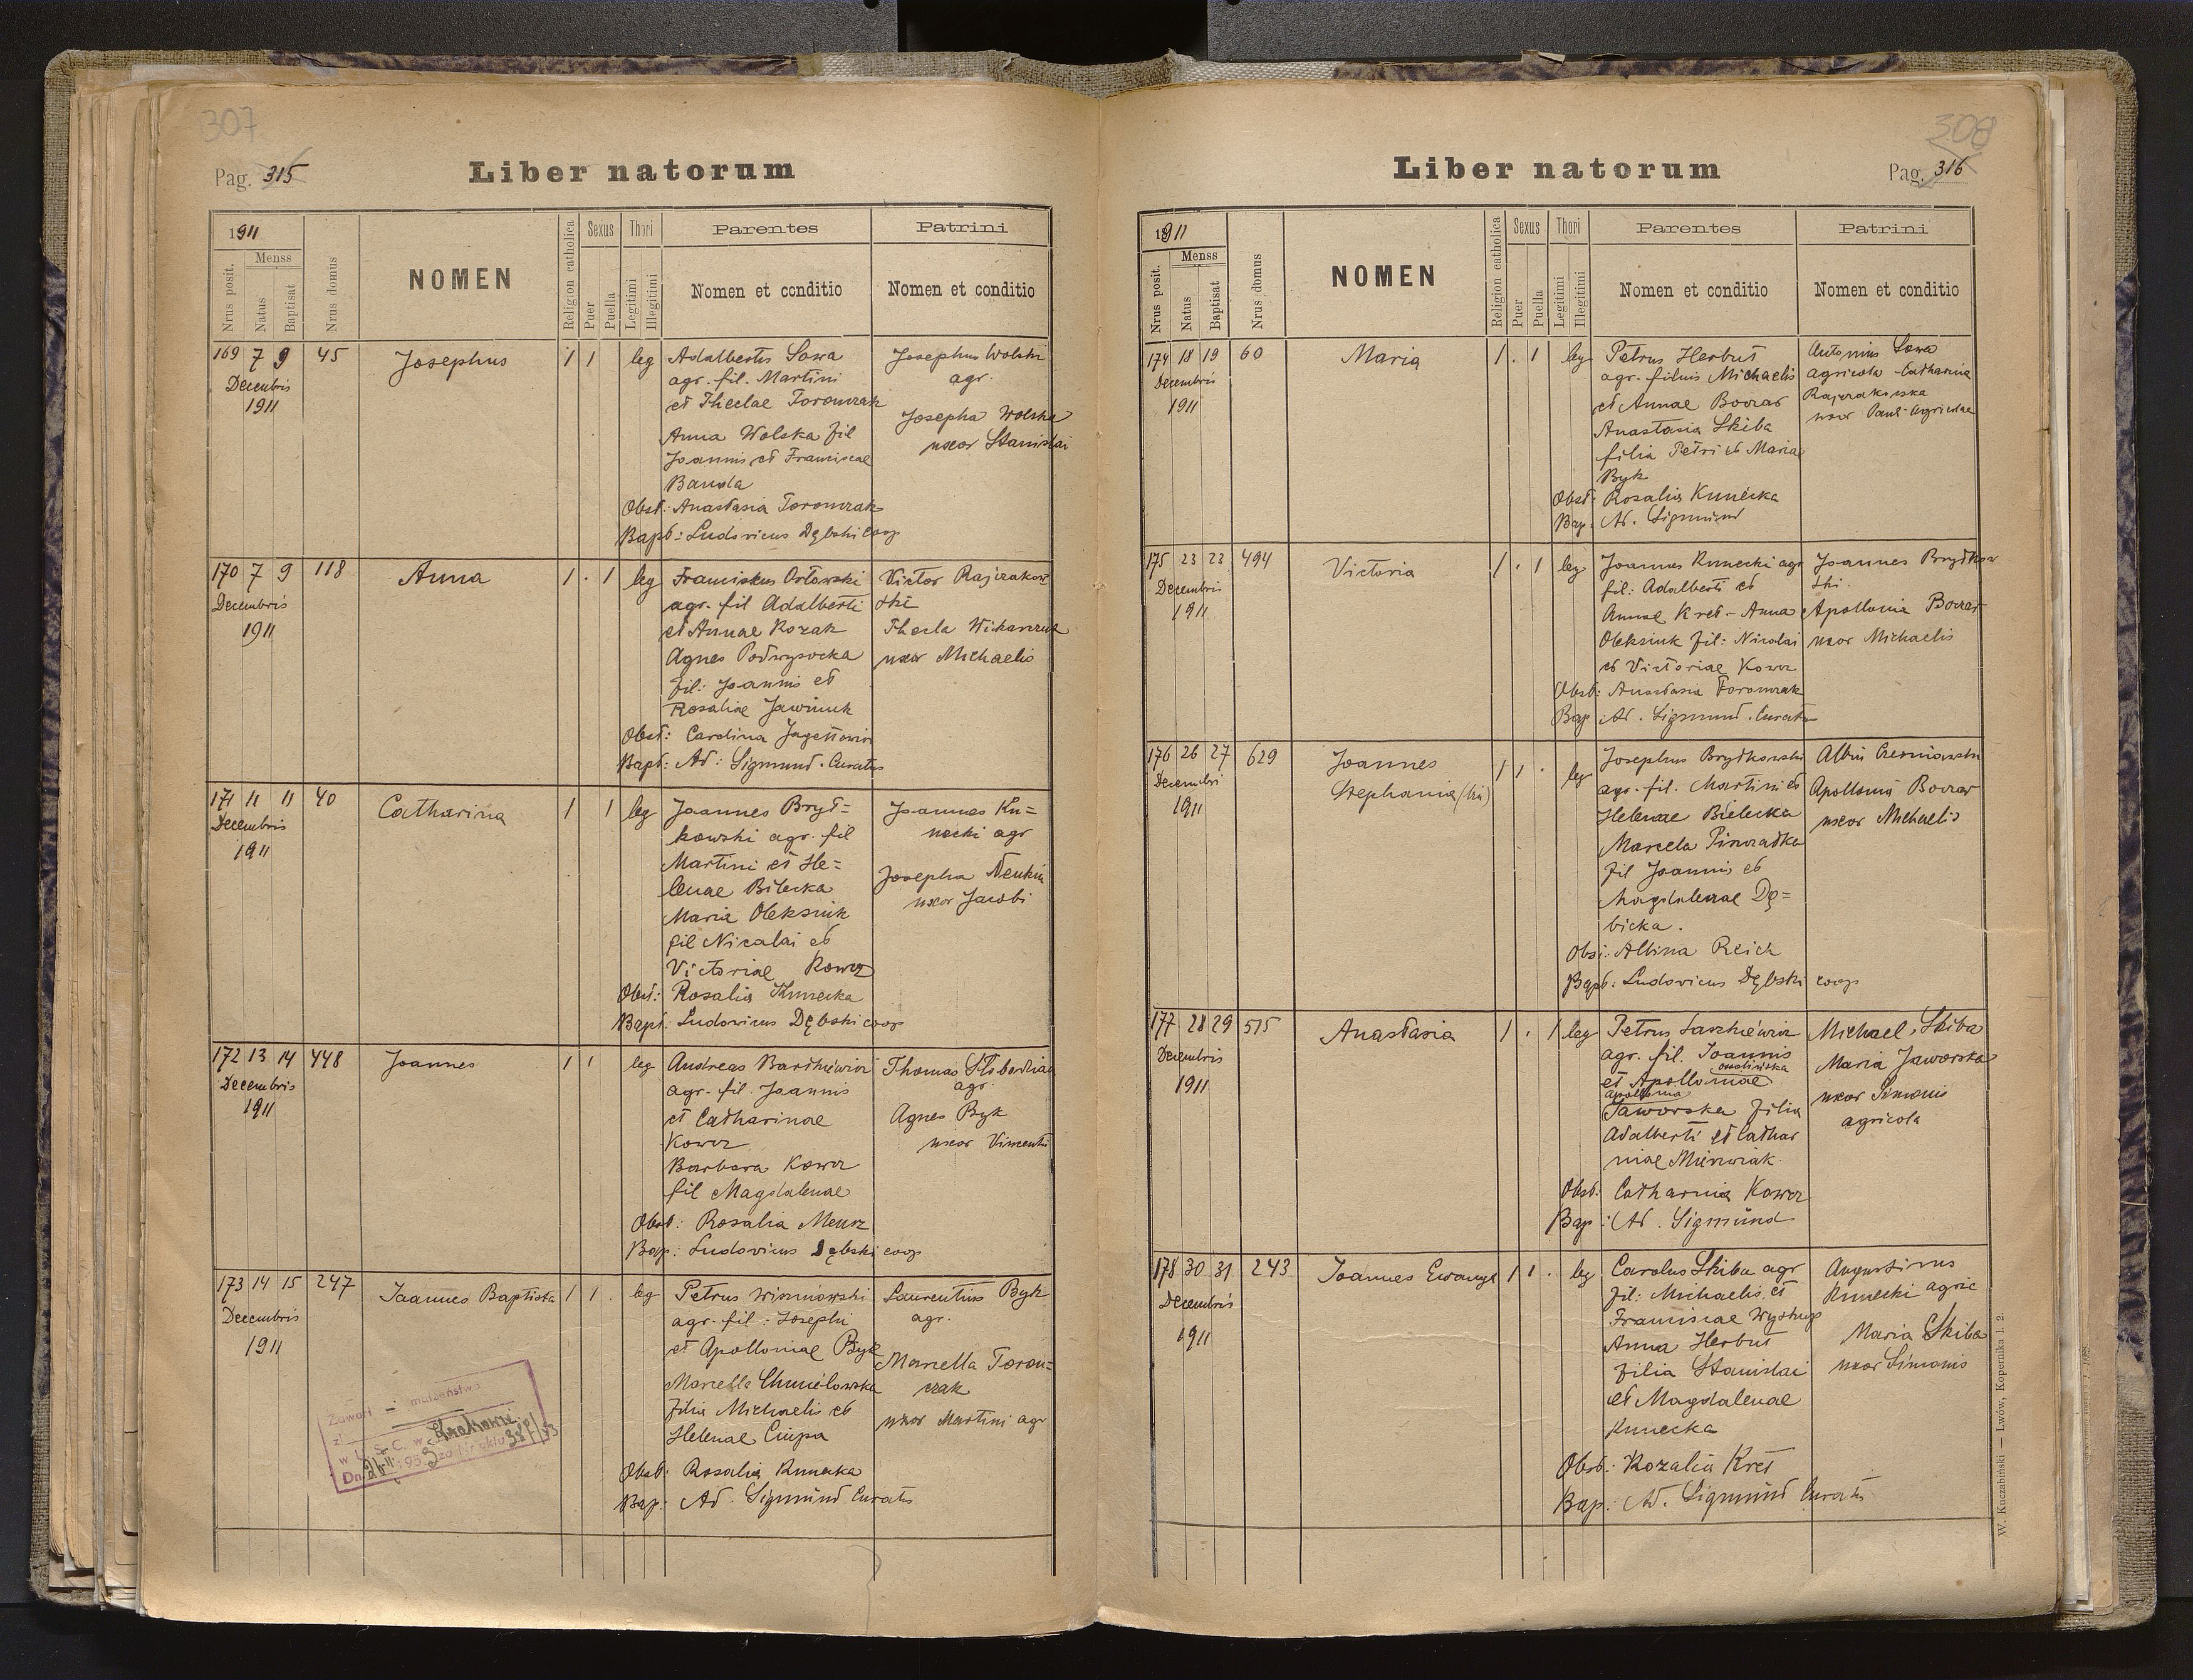 307
Pag. 315
Liber natorum
1911
Nrus posit.
Menss
Natus
Baptisat
Nrus domus
NOMEN
Religion catholica
Sexus
Puer
Puella
Thori
Legitimi
Illegitimi
Parentes
Nomen et conditio
Patrini
Nomen et conditio
169 7 9 45
Decembris
1911
Josephus
1 1 leg
Adalbertus Sowa
agr. fil. Martini
et Theclae Toronczak
Anna Wolska fil
Joannis et Franciscae
Banda
Obst: Anastasia Toronczak
Bapt: Ludovicus Dębski coop
Josephus Wolski
agr.
Josepha Wolska
uxor Stanislai
170 7 9 118
Decembris
1911
Anna
1 . 1 leg
Franciskus Orłowski
agr. fil Adalberti
et Annae Kozak
Agnes Podwysocka
fil: Joannis et
Rosaliae
Obst: Carolina
Bapt: Ad: Sigmund. Curatus
Victor Rajzakow
ski
Thecla
uxor Michaelis
171 11 11 40
Decembris
1911
Catharina
1 1 leg
Joannes Bryt=
kowski agr. fil
Martini et He=
lenae Bilecka
Maria Oleksiuk
fil Nicolai et
Victoriae Kowcz
Obst: Rosalia Kunecka
Bapt: Ludovicus Dębski coop
Joannes Ku=
necki agr
Josepha
uxor Jacobi
172 13 14 448
Decembris
1911
Joannes
1 1 leg
Andreas Bartkiewicz
agr. fil. Joannis
et Catharinae
Kowcz
Barbara Kowcz
fil Magdalenae
Obst: Rosalia
Bap: Ludovicus Dębski coop
Thomas
agr.
Agnes Byk
uxor Vincentii
173 14 15 247
Decembris
1911
Joannes Baptista
1 1 . leg
Petrus Wisniowski
agr. fil: Josephi
et Apolloniae Byk
Marcella Chmielowska
filia Michaelis et
Helenae Ciupa
Obst: Rosalia Kunecka
Bap: Ad. Sigmund Curatus
Laurentius Byk
agr.
Marcella Toron=
czak
uxor Martini agr
Zawarł małżeństwo
w U.S.C. w Krakowie
308
Liber natorum
Pag. 316
1911
Nrus posit.
Menss
Natus
Baptisat
Nrus domus
NOMEN
Religion catholica
Sexus
Puer
Puella
Thori
Legitimi
Illegitimi
Parentes
Nomen et conditio
Patrini
Nomen et conditio
174 18 19 60
Decembris
1911
Maria
1 . 1 leg
Petrus Herbut
agr. filius Michaelis
et Annae Boczar
Anastasia Skiba
filia Petri et Maria
Byk
Obst: Rosalia Kunecka
Bap: Ad. Sigmund
Antonius Sowa
agricola Catharina
Rajzakowska
uxor Pauli agricolae
175 23 23 494
Decembris
1911
Victoria
1 . 1 leg
Joannes Kunecki agr
fil: Adalberti et
Annae Kret - Anna
Oleksiuk fil: Nicolai
et Victoriae Kowcz
Obst: Anastasia Toronczak
Bap: Ad. Sigmund. Curatus
Joannes Brytkow
ski
Apollonia Boczar
uxor Michaelis
176 26 27 629
Decembri
1911
Joannes
Stephania
1 1 . leg
Josephus Brytkowski
agr. fil. Martini et
Helenae Bielecka
Marcela
fil Joannis et
Magdalenae Dę=
bicka.
Obst: Albina Reich
Bapt: Ludovicus Dębski coop
Albin
Apollonia Boczar
uxor Michaelis
177 28 29 515
Decembris
1911
Anastasia
1 . 1 leg
Petrus Laszkiewicz
agr. fil. Joannis
et Apolloniae
Apollonia
Jaworska filia
Adalberti et Cathar
inae
Obst: Catharina Kowcz
Bap: Ad. Sigmund
Michael Skiba
Maria Jaworska
uxor Simonis
agricola
178 30 31 243
Decembris
1911
Joannes Ewangl
1 1 . leg
Carolus Skiba agr
fil: Michaelis et
Franciscae Wystup
Anna Herbut
filia Stanislai
et Magdalenae
Kunecka
Obst: Rozalia Kret
Bap: Ad. Sigmund Curatus
Augustinus
Kunecki agric
Maria Skiba
uxor Simonis
W. Kuczabiński — Lwów, Kopernika l. 2.